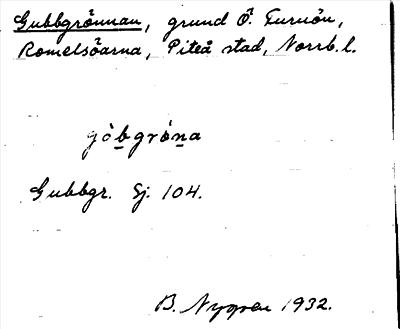 Gubbgrönnan, grund Ö. Furuön,
Romelsöarna, Piteå stad, Norrb. l.
gòb̲grǿn̲a
Gubbgr. Sj. 104.
B. Nygren 1932.